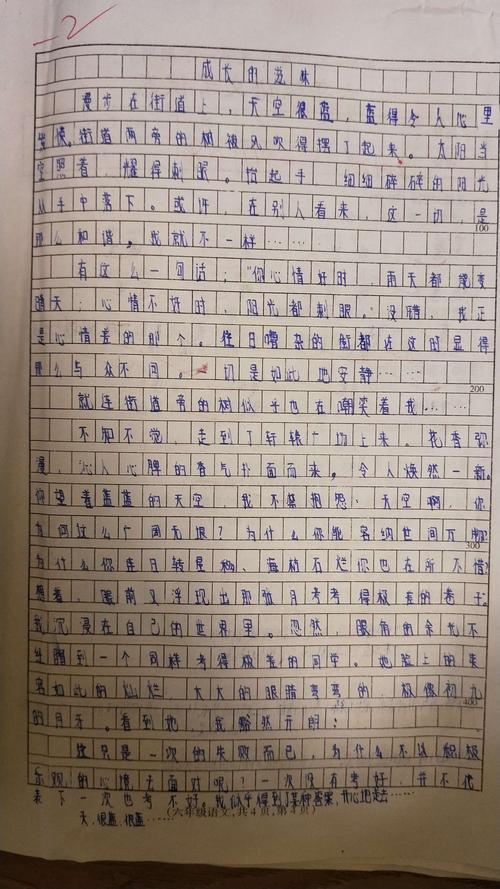 -2
成长的滋味
漫步在街道上，天空很蓝，蓝得令人心里
发慌。街道两旁的树被风吹得摆了起来。太阳当
空照着，耀得刺眼。抬起手，细细碎碎的阳光
从手中落下。或许，在别人看来，这一切，是
那么和谐，我就不一样……
100
有这么一句话：“你心情好时，雨天都能变
晴天；心情不好时，阳光都刺眼。”没错，我正
是心情差的那个。往日嘈杂的街都在这时显得
那么与众不同。一切是如此地安静……
200
就连街道旁的树似乎也在嘲笑着我……
不知不觉，走到了轩辕广场上来。花香弥
漫，沁人心脾的香气扑面而来。令人焕然一新。
仰望着蓝蓝的天空，我不禁想：天空啊，你
为何这么广阔无垠？为什么你能容纳世间万物？
300
为什么你连日转星移、海枯石烂你也在所不惜？
想着，眼前又浮现出那张月考考得极差的卷子。
我沉浸在自己的世界里。忽然，眼角的余光不
经瞄到一个同样考得极差的同学。她脸上的笑
容如此的灿烂，大大的眼睛弯弯的，极像初九
400
的月牙。看到她，我豁然开朗：
这只是一次的失败而已，为什么不以积极
乐观的心境去面对呢？一次没有考好，并不代
表下一次也考不好。我似乎得到了某种答案，开心地走去……
天，很蓝，很蓝……
(六年级语文，共4页，第4页)